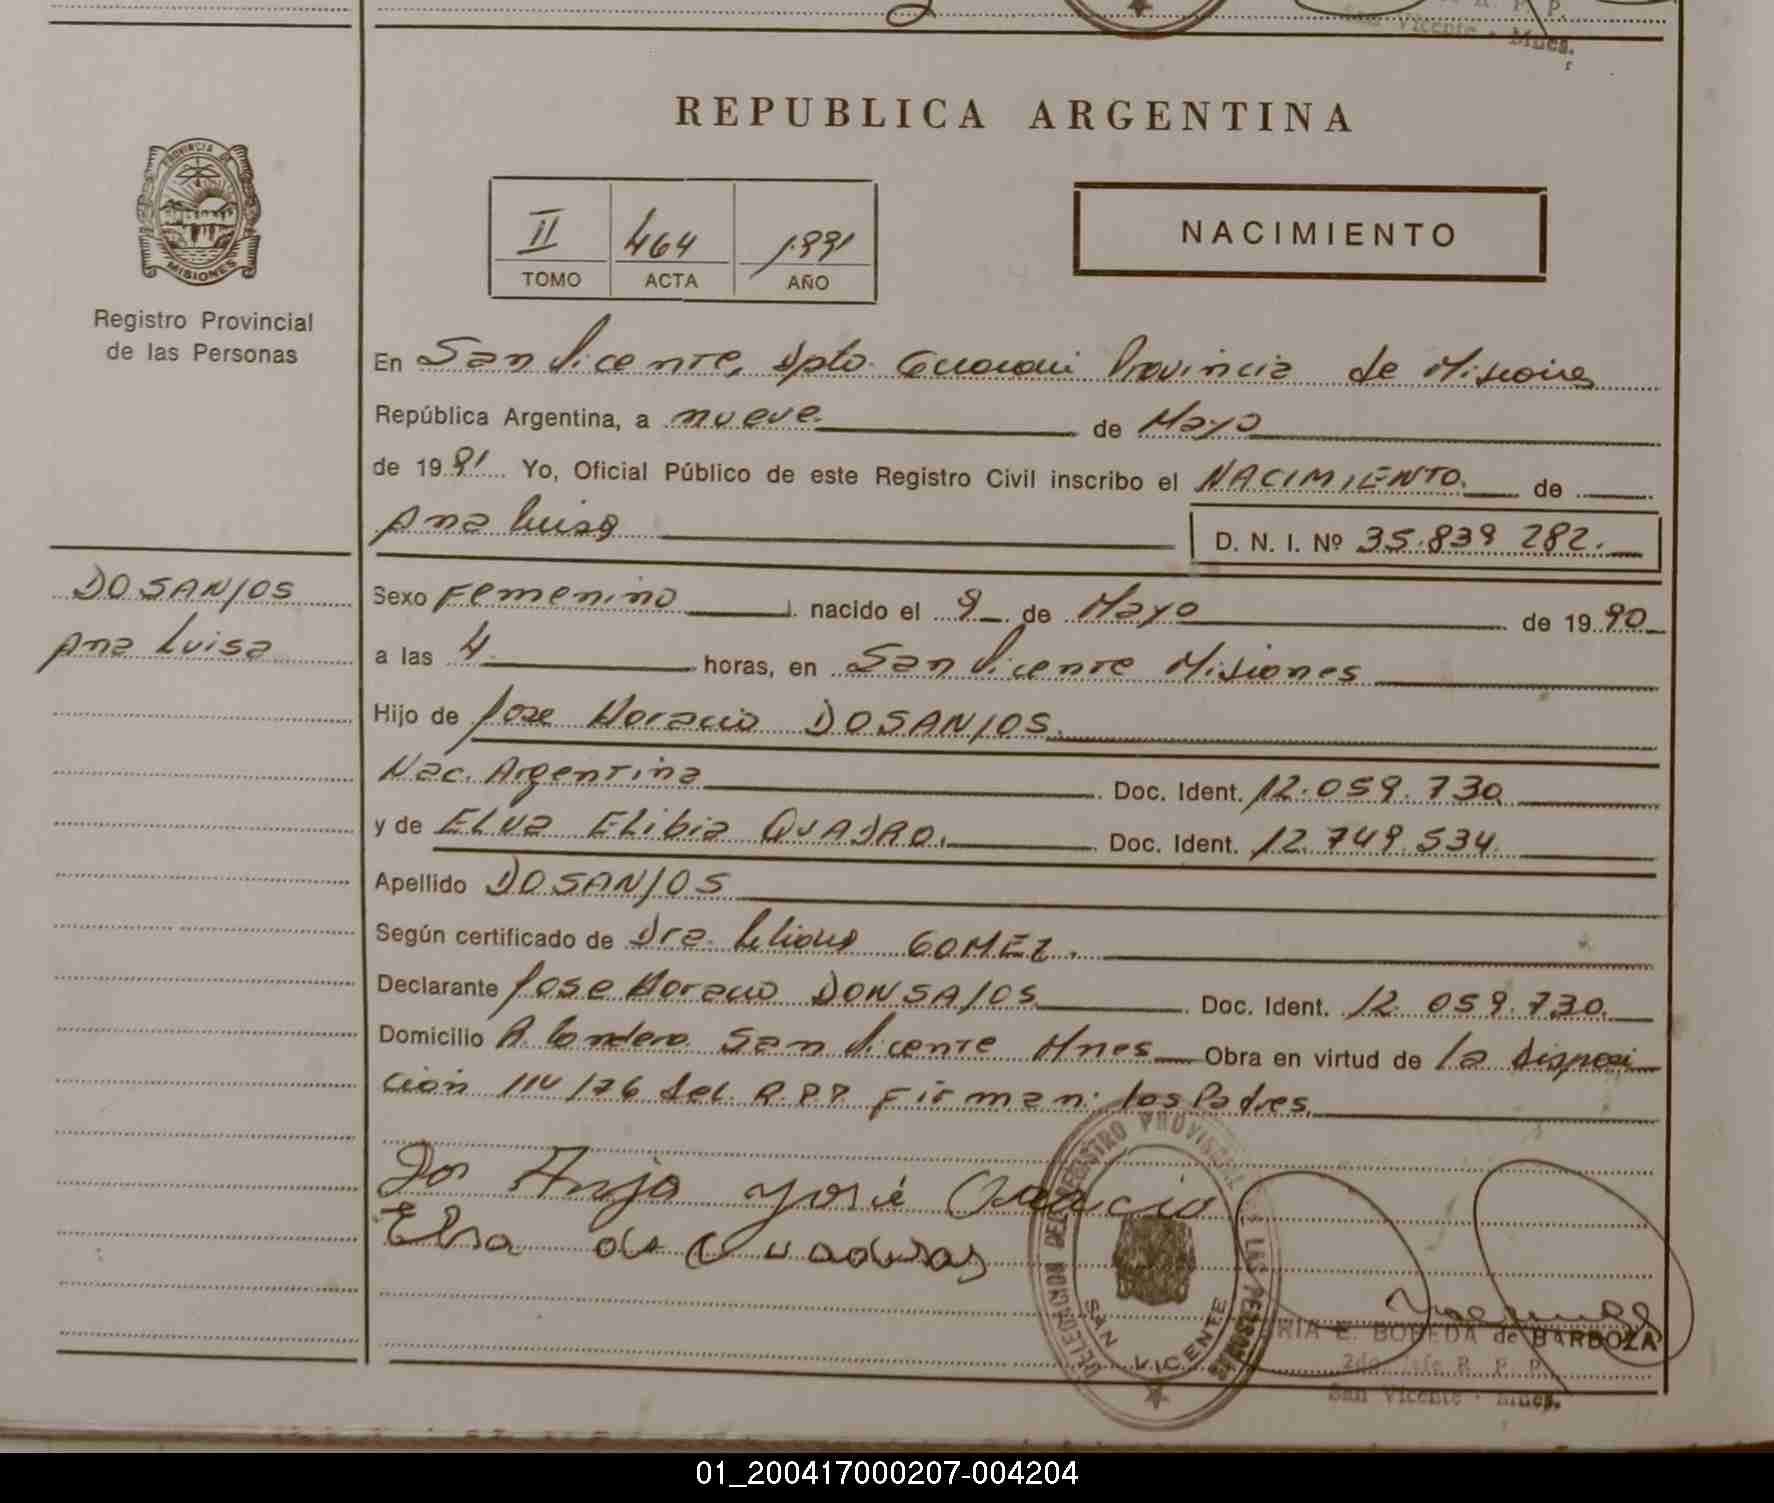 San Vicente - Mnes.
REPUBLICA ARGENTINA
PROVINCIA DE
MISIONES
Registro Provincial
de las Personas
II 464 1991
TOMO ACTA AÑO
NACIMIENTO
En San Vicente, Dpto. Guarani Provincia de Misiones
República Argentina, a nueve de Mayo
de 1991 Yo, Oficial Público de este Registro Civil inscribo el NACIMIENTO de
Ana Luisa D. N. I. Nº 35.839 282.
DOSANJOS
Ana Luisa
Sexo Femenino nacido el 9 de Mayo de 1990
a las 4 horas, en San Vicente Misiones
Hijo de Jose Horacio DOSANJOS
Nac. Argentina Doc. Ident. 12.059.730
y de ELVA Elibia QUADRO. Doc. Ident. 12.749.534
Apellido DOSANJOS
Según certificado de Dra. Liliana GOMEZ.
Declarante Jose Horacio DONSAJOS Doc. Ident. 12.059.730.
Domicilio San Vicente Mnes Obra en virtud de la disposi
ción 114/76 del R.P.P. Firman: los Padres.
Dos Anjo José Oracio
Elsa de Cuadros
DELEGACION DEL REGISTRO PROVINCIAL DE LAS PERSONAS
SAN VICENTE
RIA E. BOBEDA de BARBOZA
2do. Jefe R. P. P.
San Vicente - Mnes.
01_200417000207-004204